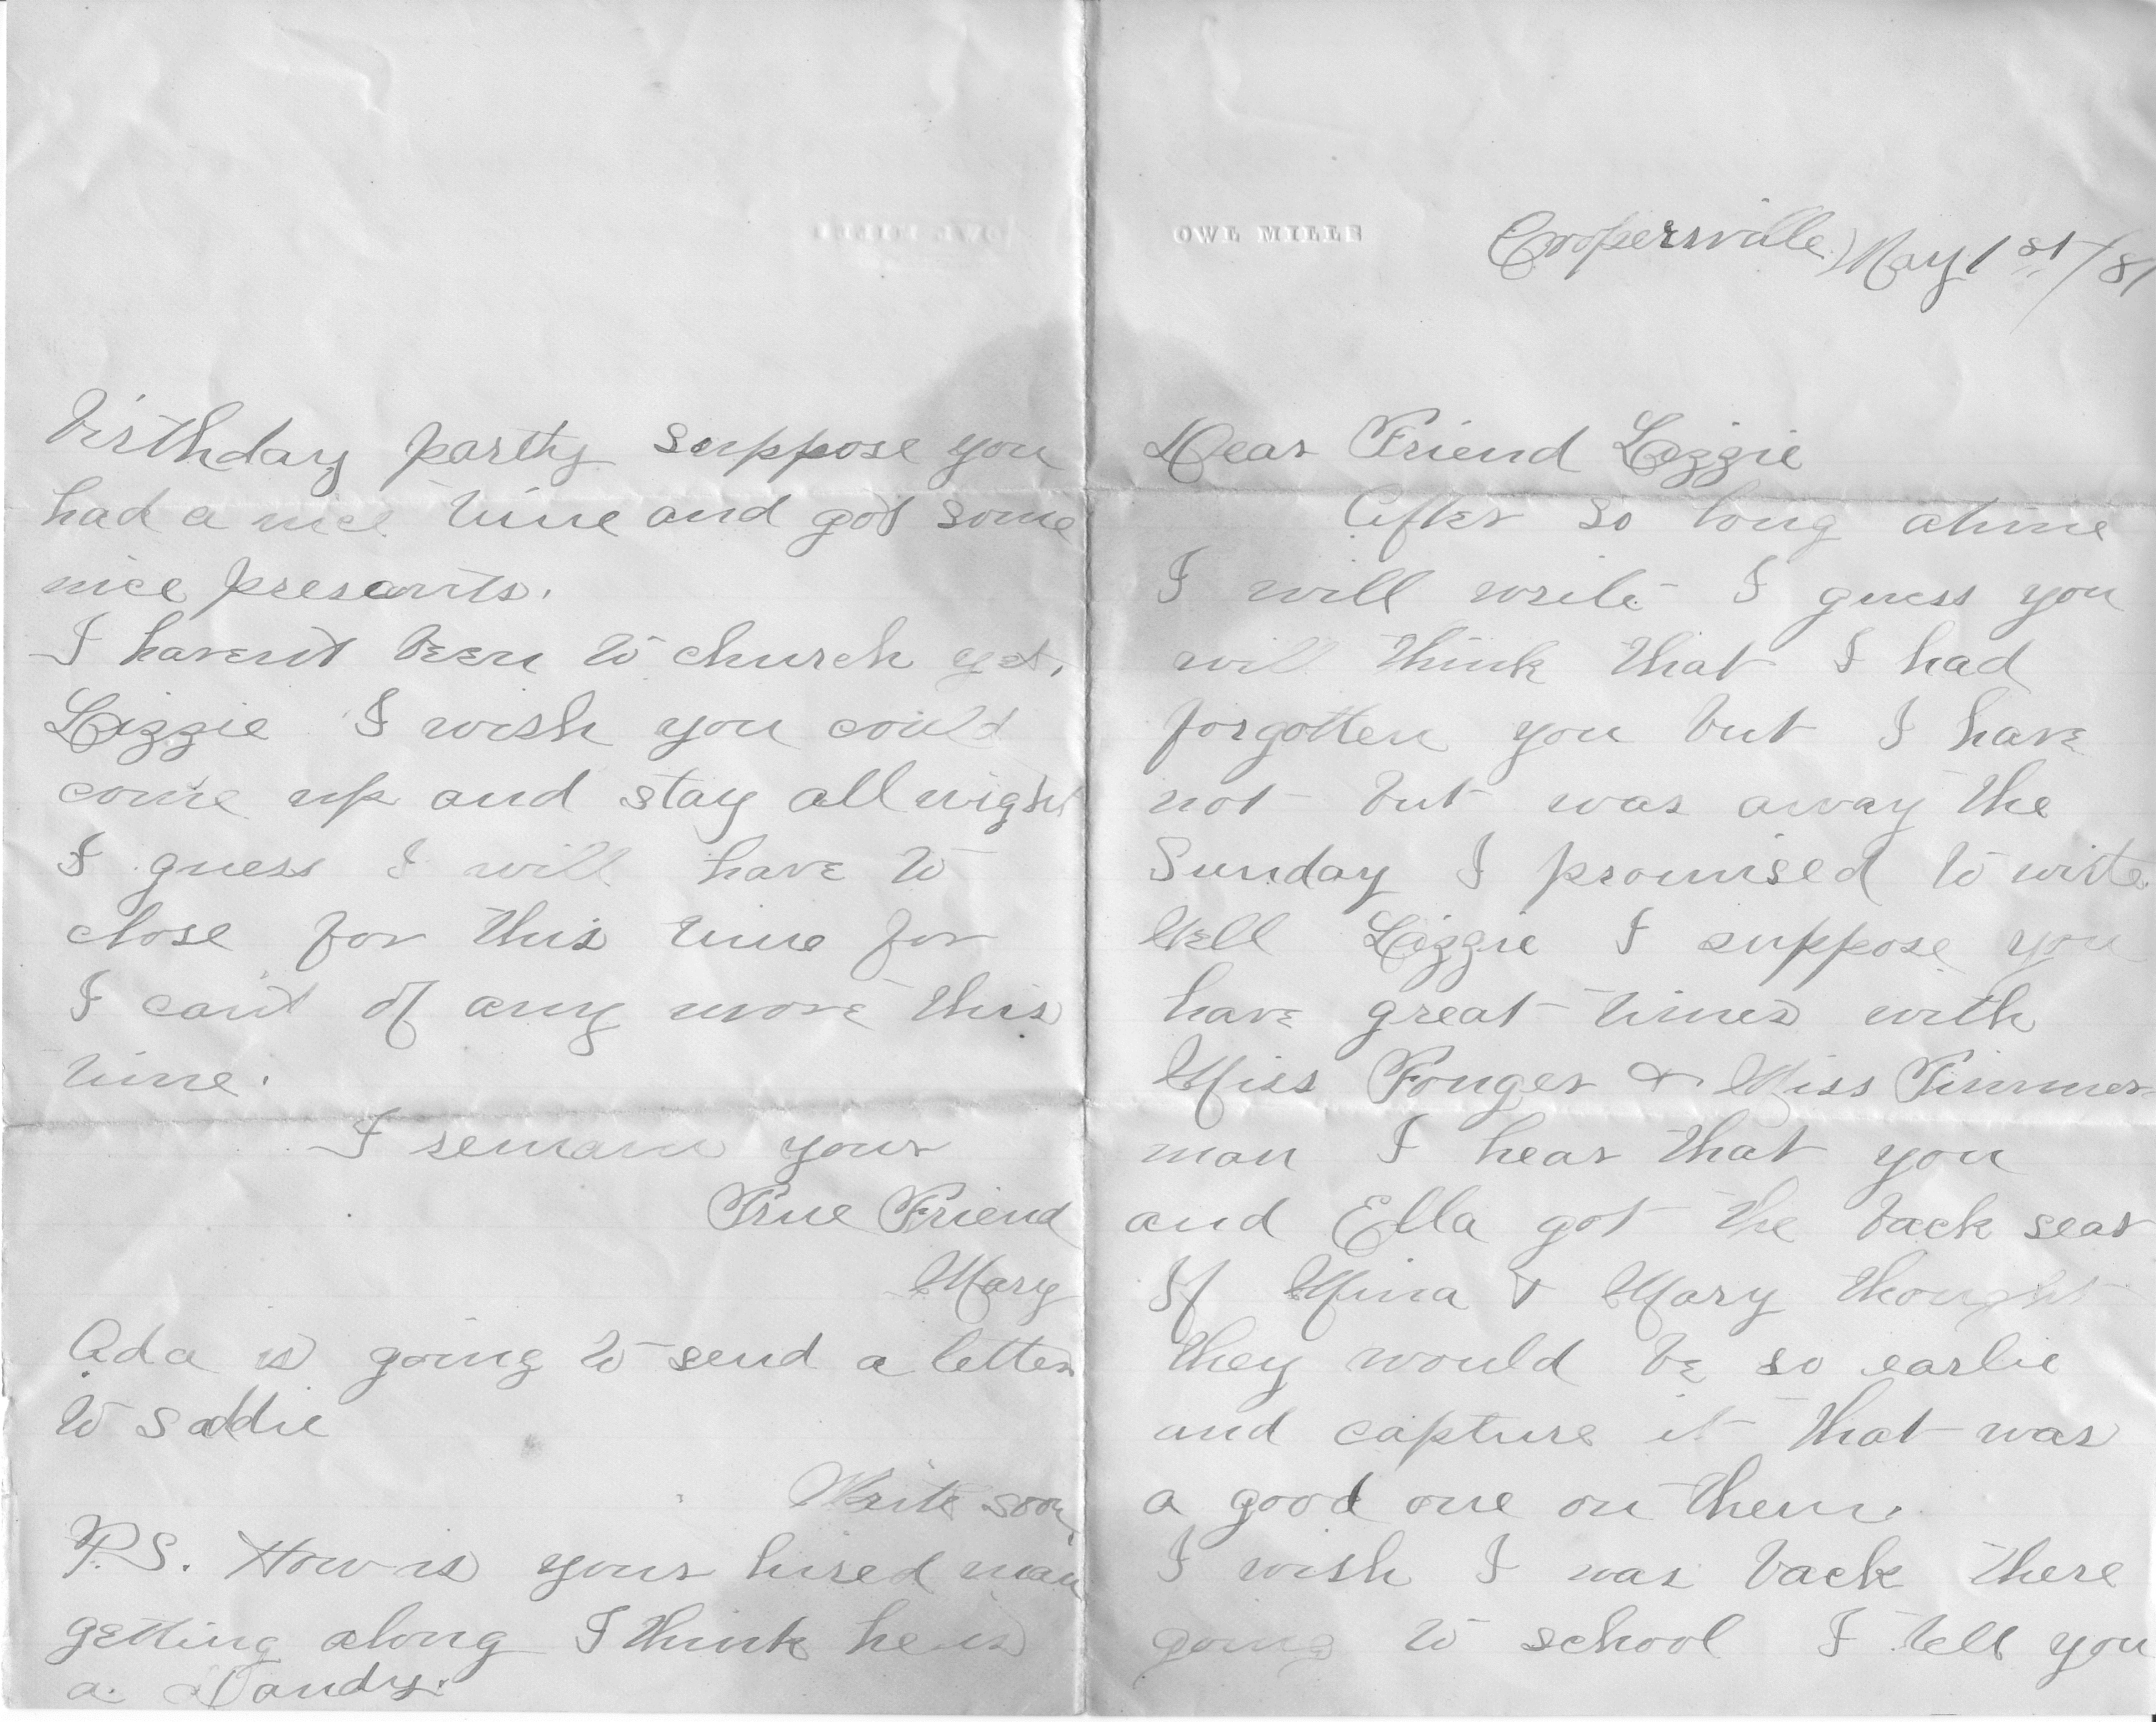 OWL MILLS
Coopersville May 1st/81
Dear Friend Lizzie
After so long atime
I will write I guess you
will think that I had
forgotten you but I have
not but was away the
Sunday I promised to write
Well Lizzie I suppose you
have great times with
Miss Fonger & Miss Timmer-
man I hear that you
and Ella got the back seat
If Mina & Mary thought
they would be so earlie
and capture it that was
a good one on them.
I wish I was back there
going to school I tell you
birthday party suppose you
had a nice time and got some
nice presants.
I havent been to church yet.
Lizzie I wish you could
come up and stay all night
I guess I will have to
close for this time for
I cant of any more this
time.
I remain your
True Friend
Mary
Ada is going to send a letter
to Saddie
Write soon
P.S. How is your hired man
getting along I think he is
a Dandy.